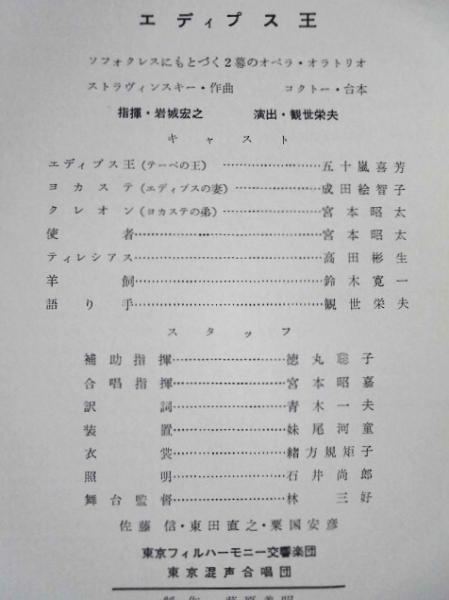 エディプス王
ソフォクレスにもとづく2幕のオペラ・オラトリオ
ストラヴィンスキー・作曲　コクトー・台本
指揮・岩城宏之　演出・観世栄夫
キャスト
エディプス王(テーベの王)……………………五十嵐喜芳
ヨカステ(エディプスの妻)……………………成田絵智子
クレオン(ヨカステの弟)……………………宮本昭太
使者……………………宮本昭太
ティレシアス……………………高田彬生
羊飼……………………鈴木寛一
語り手……………………観世栄夫
スタッフ
補助指揮……………………徳丸聡子
合唱指揮……………………宮本昭嘉
訳詞……………………青木一夫
装置……………………妹尾河童
衣裳……………………緒方規矩子
照明……………………石井尚郎
舞台監督……………………林三好
佐藤信・東田直之・粟国安彦
東京フィルハーモニー交響楽団
東京混声合唱団